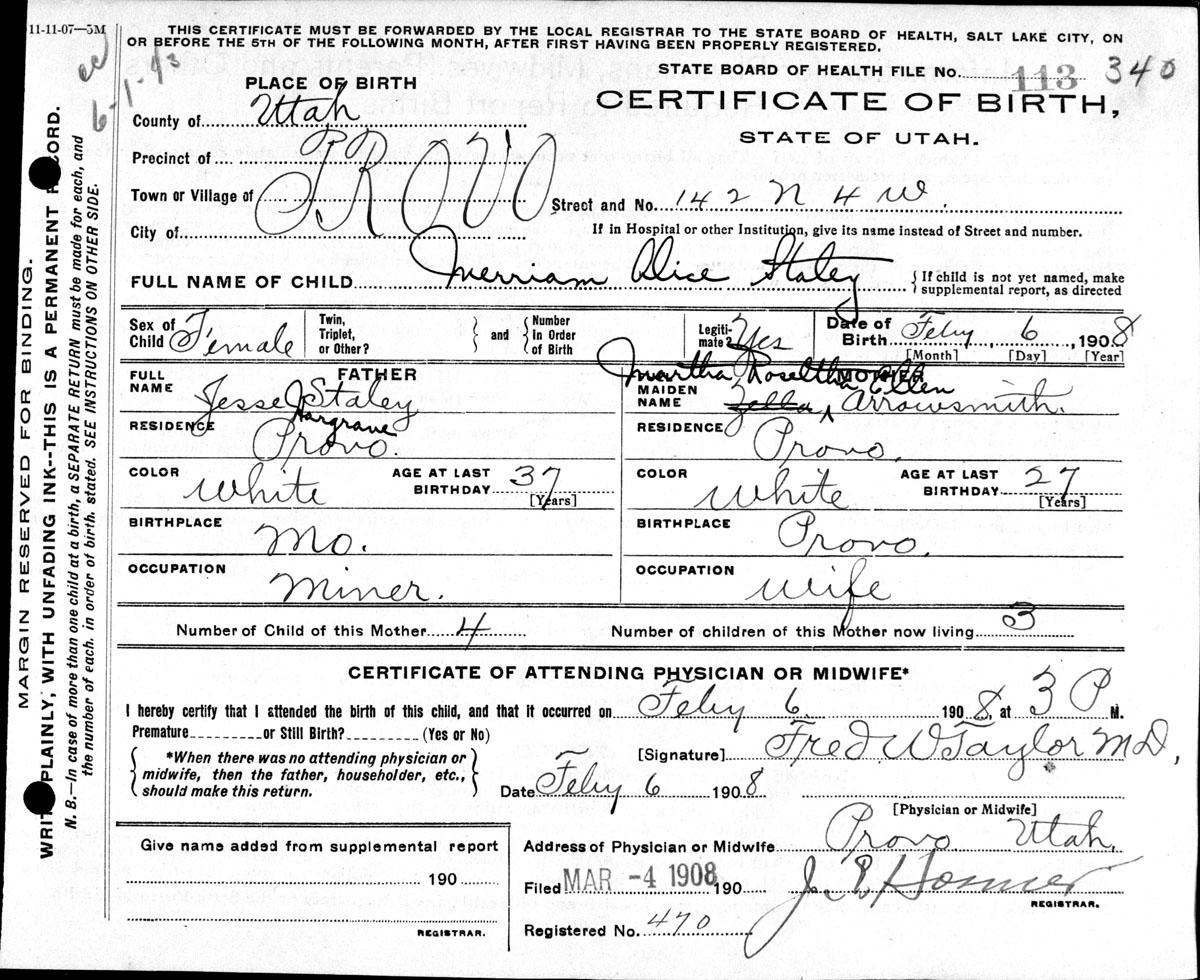 11-11-07—5M
THIS CERTIFICATE MUST BE FORWARDED BY THE LOCAL REGISTRAR TO THE STATE BOARD OF HEALTH, SALT LAKE CITY, ON
OR BEFORE THE 5TH OF THE FOLLOWING MONTH, AFTER FIRST HAVING BEEN PROPERLY REGISTERED.
STATE BOARD OF HEALTH FILE No. 113 340
6-1-43
PLACE OF BIRTH
CERTIFICATE OF BIRTH,
STATE OF UTAH.
County of Utah
Precinct of
Town or Village of PROVO Street and No. 142 N 4 W.
City of
If in Hospital or other Institution, give its name instead of Street and number.
FULL NAME OF CHILD Merriam Alice Staley { If child is not yet named, make supplemental report, as directed
Sex of Child Female Twin, Triplet, or Other? } and { Number In Order of Birth Legiti-mate? Yes Date of Birth Feby 6, 1908
[Month] [Day] [Year]
FATHER MOTHER
Martha Roseltha Ellen
FULL NAME Jesse Staley MAIDEN NAME Zella Arrowsmith.
Hargrave
RESIDENCE Provo. RESIDENCE Provo.
COLOR White AGE AT LAST BIRTHDAY 37 [Years] COLOR White AGE AT LAST BIRTHDAY 27 [Years]
BIRTHPLACE Mo. BIRTHPLACE Provo.
OCCUPATION Miner. OCCUPATION Wife
Number of Child of this Mother 4 Number of children of this Mother now living 3
CERTIFICATE OF ATTENDING PHYSICIAN OR MIDWIFE*
I hereby certify that I attended the birth of this child, and that it occurred on Feby 6 1908, at 3 P M.
Premature or Still Birth? (Yes or No)
[Signature] Fred W Taylor MD,
{ *When there was no attending physician or midwife, then the father, householder, etc., should make this return. }
Date Feby 6 1908
[Physician or Midwife]
Give name added from supplemental report
190
REGISTRAR.
Address of Physician or Midwife Provo Utah.
Filed MAR -4 1908 190
REGISTRAR.
Registered No. 470
MARGIN RESERVED FOR BINDING.
WRITE PLAINLY, WITH UNFADING INK--THIS IS A PERMANENT RECORD.
N. B.—In case of more than one child at a birth, a SEPARATE RETURN must be made for each, and
the number of each. in order of birth. stated. SEE INSTRUCTIONS ON OTHER SIDE.